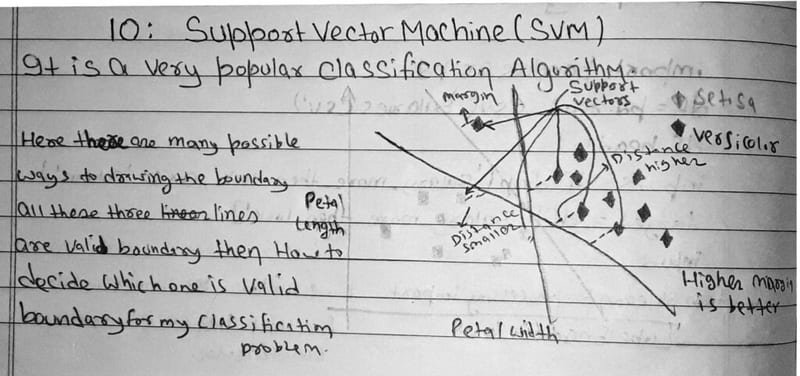 10: Support Vector Machine (SVM)
It is a very popular classification Algorithm.
margin
Support
vectors
Setisa
versicolor
Distance
higher
Here there are many possible
ways to drawing the boundary
all these three lines
are valid boundary then How to
decide which one is valid
boundary for my classification
problem.
Petal
Length
Distance
smaller
Higher margin
is better
Petal width